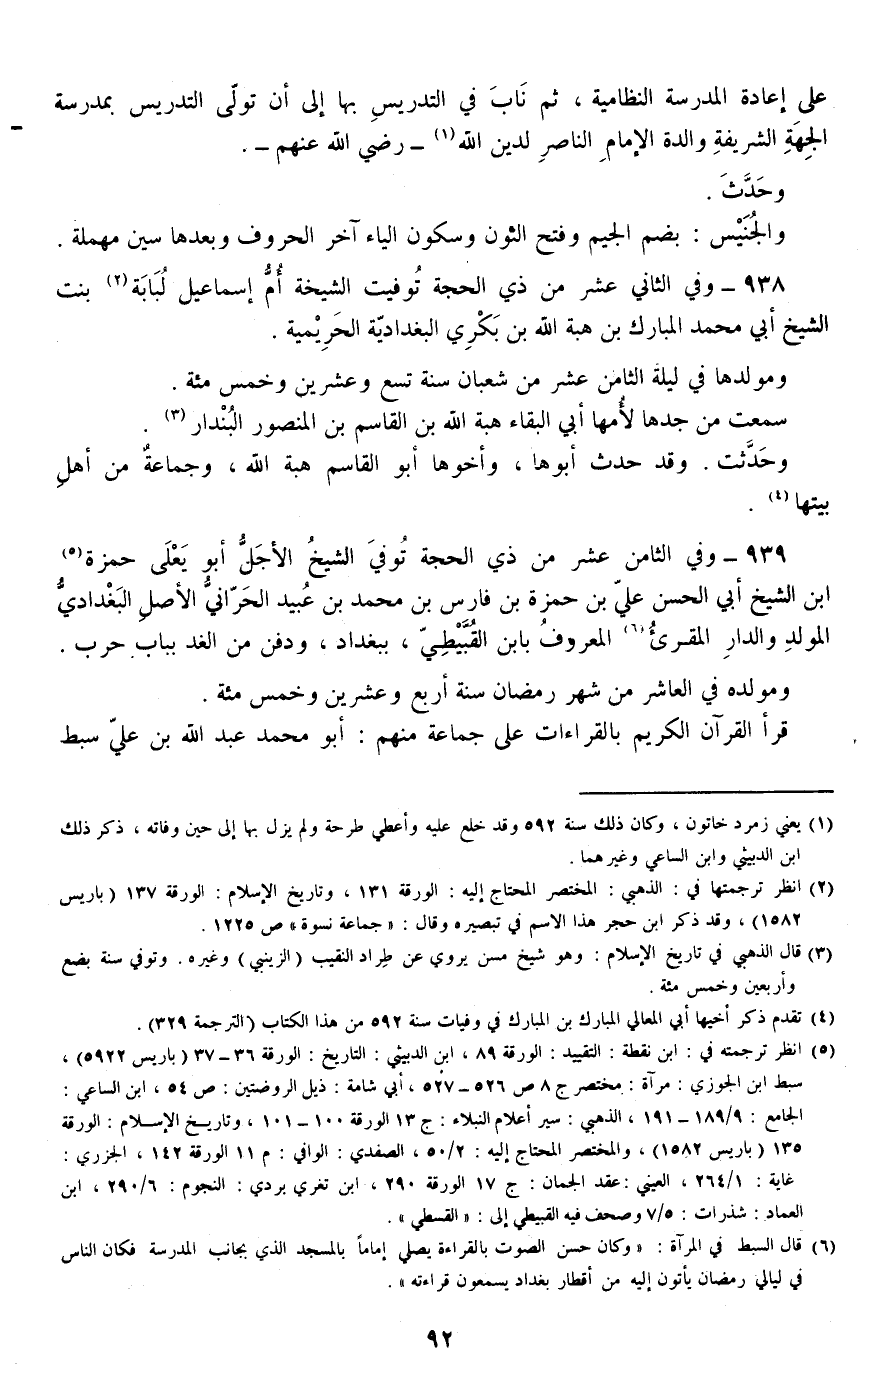 على إعادة المدرسة النظامية ، ثم نَابَ في التدريسِ بها إلى أن تولّى التدريس بمدرسة
الجِهَةِ الشريفةِ والدة الإمامِ الناصرِ لدين الله(١) ــ رضي الله عنهم ــ .
وحَدَّثَ .
والجُنَيْس : بضم الجيم وفتح الثون وسكون الياء آخر الحروف وبعدها سين مهملة .
٩٣٨ ــ وفي الثاني عشر من ذي الحجة تُوفيت الشيخة أُمُّ إسماعيل لُبَابَة(٢) بنت
الشيخ أبي محمد المبارك بن هبة الله بن بَكْرِي البغداديّة الحَرِيْمية .
ومولدها في ليلة الثامن عشر من شعبان سنة تسع وعشرين وخمس مئة .
سمعت من جدها لأُمها أبي البقاء هبة الله بن القاسم بن المنصور البُنْدار(٣) .
وحَدَّثت . وقد حدث أبوها ، وأخوها أبو القاسم هبة الله ، وجماعةٌ من أهلِ
بيتها(٤) .
٩٣٩ ــ وفي الثامن عشر من ذي الحجة تُوفيَ الشيخُ الأجَلُّ أبو يَعْلَى حمزة(٥)
ابن الشيخ أبي الحسن عليّ بن حمزة بن فارس بن محمد بن عُبيد الحَرّانيُّ الأصلِ البَغْداديُّ
المولدِ والدارِ المقرئُ(٦) المعروفُ بابن القُبَّيْطِيّ ، ببغداد ، ودفن من الغد بباب حرب .
ومولده في العاشر من شهر رمضان سنة أربع وعشرين وخمس مئة .
قرأ القرآن الكريم بالقراءات على جماعة منهم : أبو محمد عبد الله بن عليّ سبط
(١) يعني زمرد خاتون ، وكان ذلك سنة ٥٩٢ وقد خلع عليه وأعطي طرحة ولم يزل بها إلى حين وفاته ، ذكر ذلك
ابن الدبيثي وابن الساعي وغيرهما .
(٢) انظر ترجمتها في : الذهبي : المختصر المحتاج إليه : الورقة ١٣١ ، وتاريخ الإسلام : الورقة ١٣٧ (باريس
١٥٨٢) ، وقد ذكر ابن حجر هذا الاسم في تبصيره وقال : « جماعة نسوة » ص ١٢٢٥ .
(٣) قال الذهبي في تاريخ الإسلام : وهو شيخ مسن يروي عن طِراد النقيب (الزينبي) وغيره . وتوفي سنة بضع
وأربعين وخمس مئة .
(٤) تقدم ذكر أخيها أبي المعالي المبارك بن المبارك في وفيات سنة ٥٩٢ من هذا الكتاب (الترجمة ٣٢٩) .
(٥) انظر ترجمته في : ابن نقطة : التقييد : الورقة ٨٩ ، ابن الدبيثي : التاريخ : الورقة ٣٦ــ٣٧ (باريس ٥٩٢٢) ،
سبط ابن الجوزي : مرآة : مختصر ج ٨ ص ٥٢٦ــ٥٢٧ ، أبي شامة : ذيل الروضتين : ص ٥٤ ، ابن الساعي :
الجامع : ١٨٩/٩ ــ ١٩١ ، الذهبي : سير أعلام النبلاء : ج ١٣ الورقة ١٠٠ ــ ١٠١ ، وتاريخ الإسلام : الورقة
١٣٥ (باريس ١٥٨٢) ، والمختصر المحتاج إليه : ٥٠/٢ ، الصفدي : الوافي : م ١١ الورقة ١٤٢ ، الجزري :
غاية : ٢٦٤/١ ، العيني : عقد الجمان : ج ١٧ الورقة ٢٩٠ ، ابن تغري بردي : النجوم : ٢٩٠/٦ ، ابن
العماد : شذرات : ٧/٥ وصحف فيه القبيطي إلى : « القسطي » .
(٦) قال السبط في المرآة : « وكان حسن الصوت بالقراءة يصلي إماماً بالمسجد الذي بجانب المدرسة فكان الناس
في ليالي رمضان يأتون إليه من أقطار بغداد يسمعون قراءته » .
٩٢